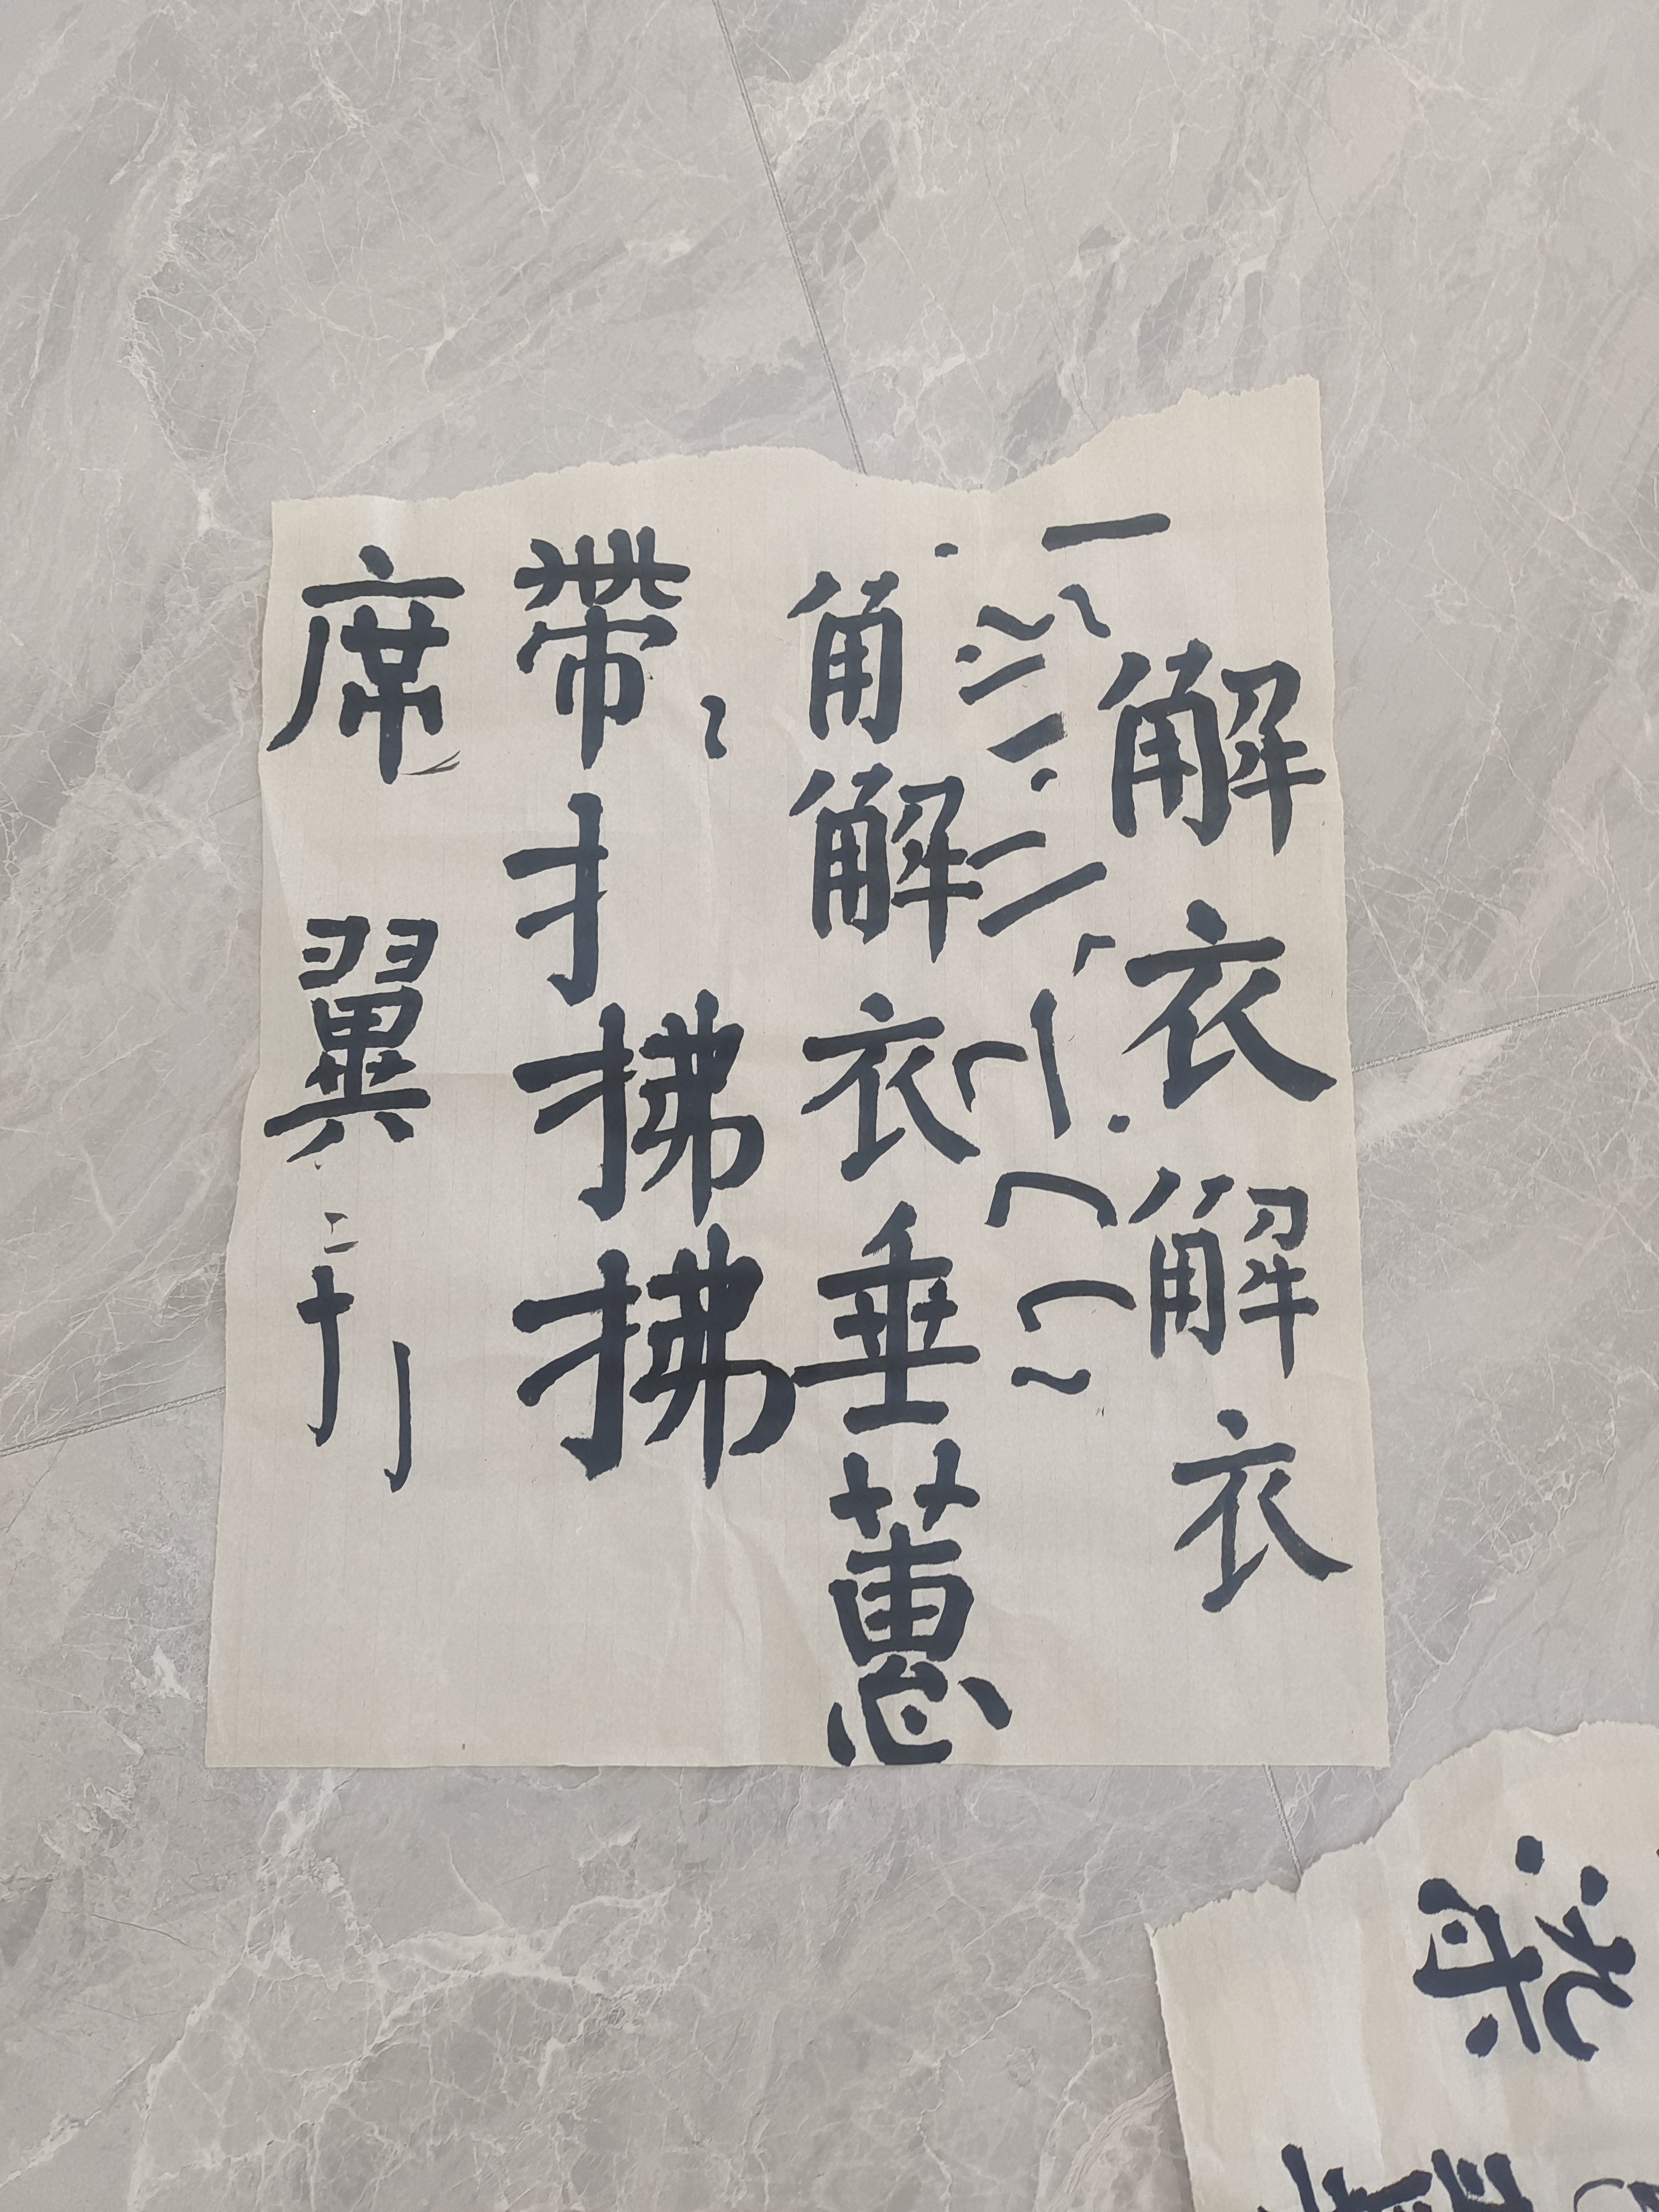 一
解衣解衣
角解衣垂蕙
帶扌拂拂
席翼